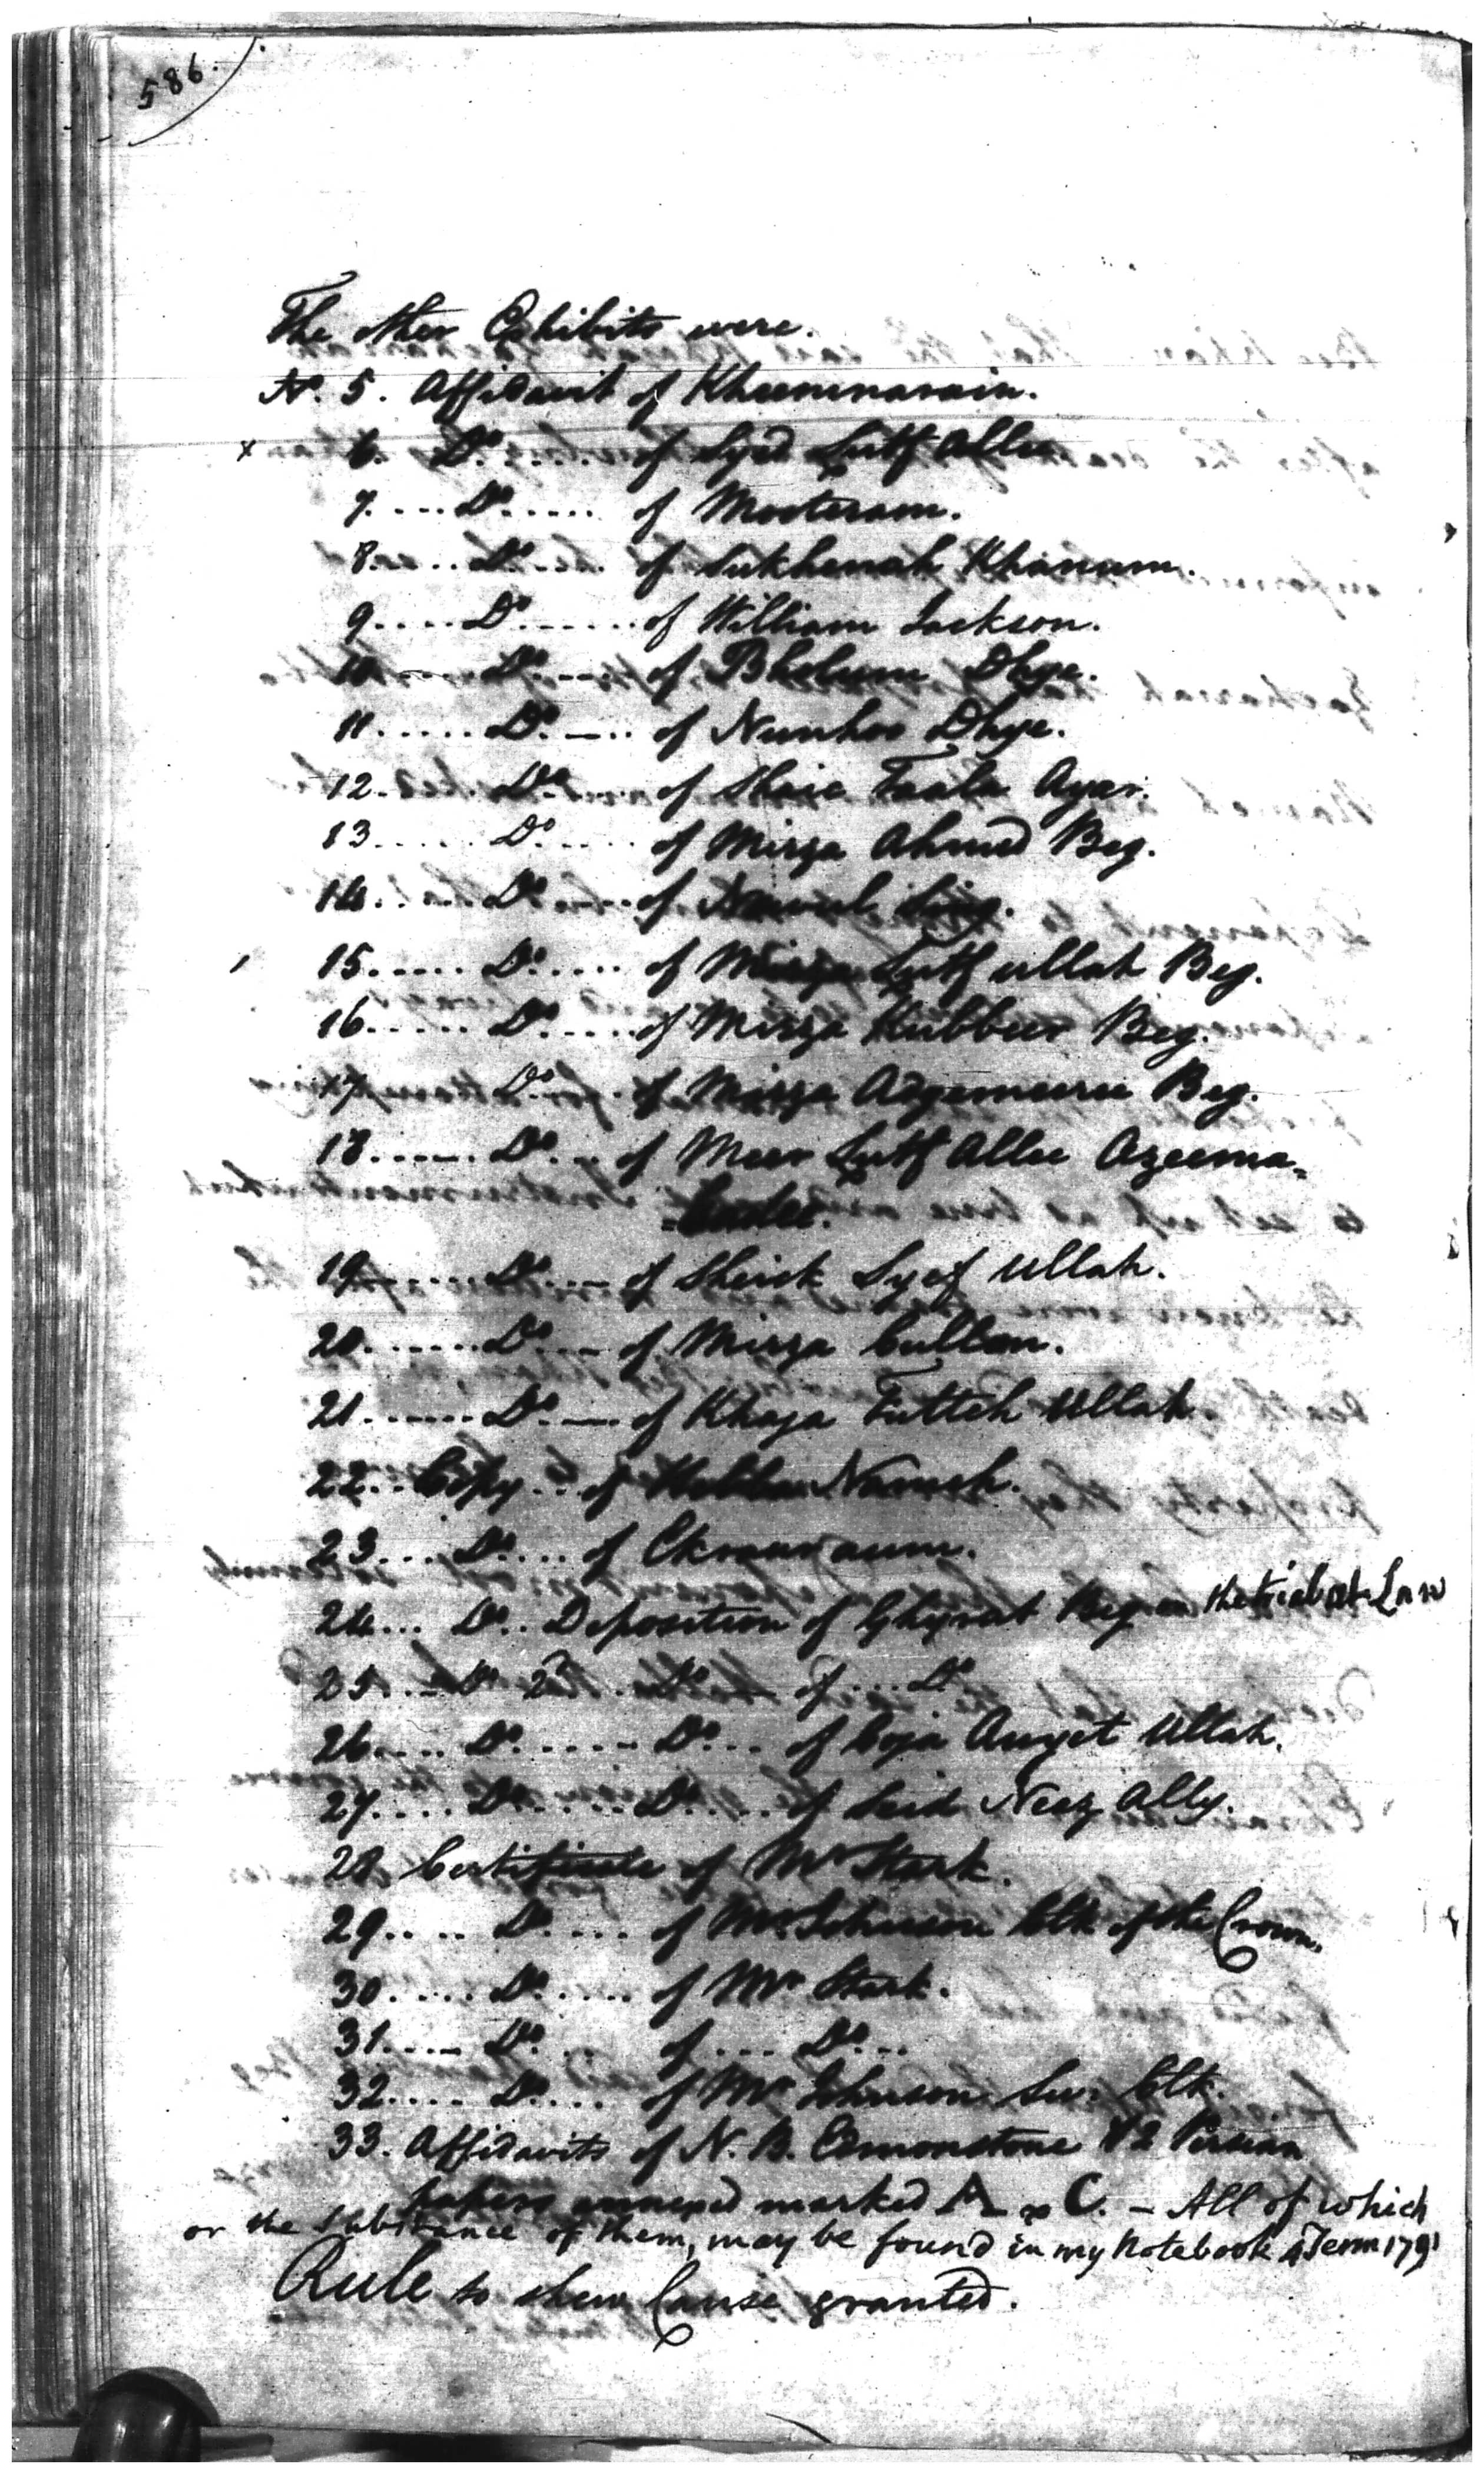 586.
The other Exhibits were.
No. 5. Affidavit of Kheemnarain.
x 6. Do. .... of Syed Lutf Allee
7. ... Do ..... of Mooteram.
8. ... Do .... of Sukhenah Khanum.
9. .... Do ...... of William Jackson.
10. ... Do .... of Bholum Dhye.
11. ..... Do. — .. of Nunhoo Dhye.
12. .... Do .... of Shaie Taala Ayar.
13. .... Do. .... of Mirza Ahmed Beg.
14. .... Do .... of Sing.
15. .... Do. .... of Mirza Lutf ullah Beg.
16. .... Do. .... of Mirza Kubbeer Beg.
17. .... Do. .... of Mirza Beg.
18. .... Do. ... of Meer Lutf Allee Azeema=
=badee.
19. ..... Do. ... of Sheick Syef Ullah.
20. ...... Do. ... of Mirza Cullan.
21. ...... Do. — of Khaja Futteh Ullah.
22. .. Copy .. of Nameh.
23. ... Do. .... of
24. ... Do. .. Deposition of Ghyrat Beg on the trial at Law
25. .. Do 2d . Do — of ... Do
26. ... Do. ..... Do. ... of Coja Auyet Ullah.
27. ... Do. .... Do. .... of Seid Neaz Ally.
28 Certificate of Mr Stark.
29. .. .. Do. .... of Mr Johnson Clk of the Crown.
30. .... Do. .... of Mr Stark.
31. ... Do. ... of .... Do. ...
32. .... Do. ... of Mr Johnson Clk.
33. Affidavits of N. B. Edmonstone & 2 Persian
papers annexed marked A & C. — All of which
or the substance of them, may be found in my Notebook 4 Term 1791
Rule to shew Cause granted.